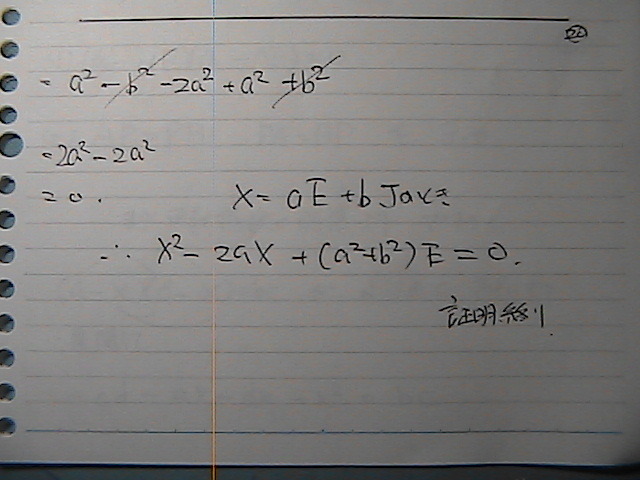 ㉒
= a² - b² - 2a² + a² + b²
= 2a² - 2a²
= 0.
X = aE + bJのとき
∴ X² - 2aX + (a²+b²)E = 0.
証明終り.